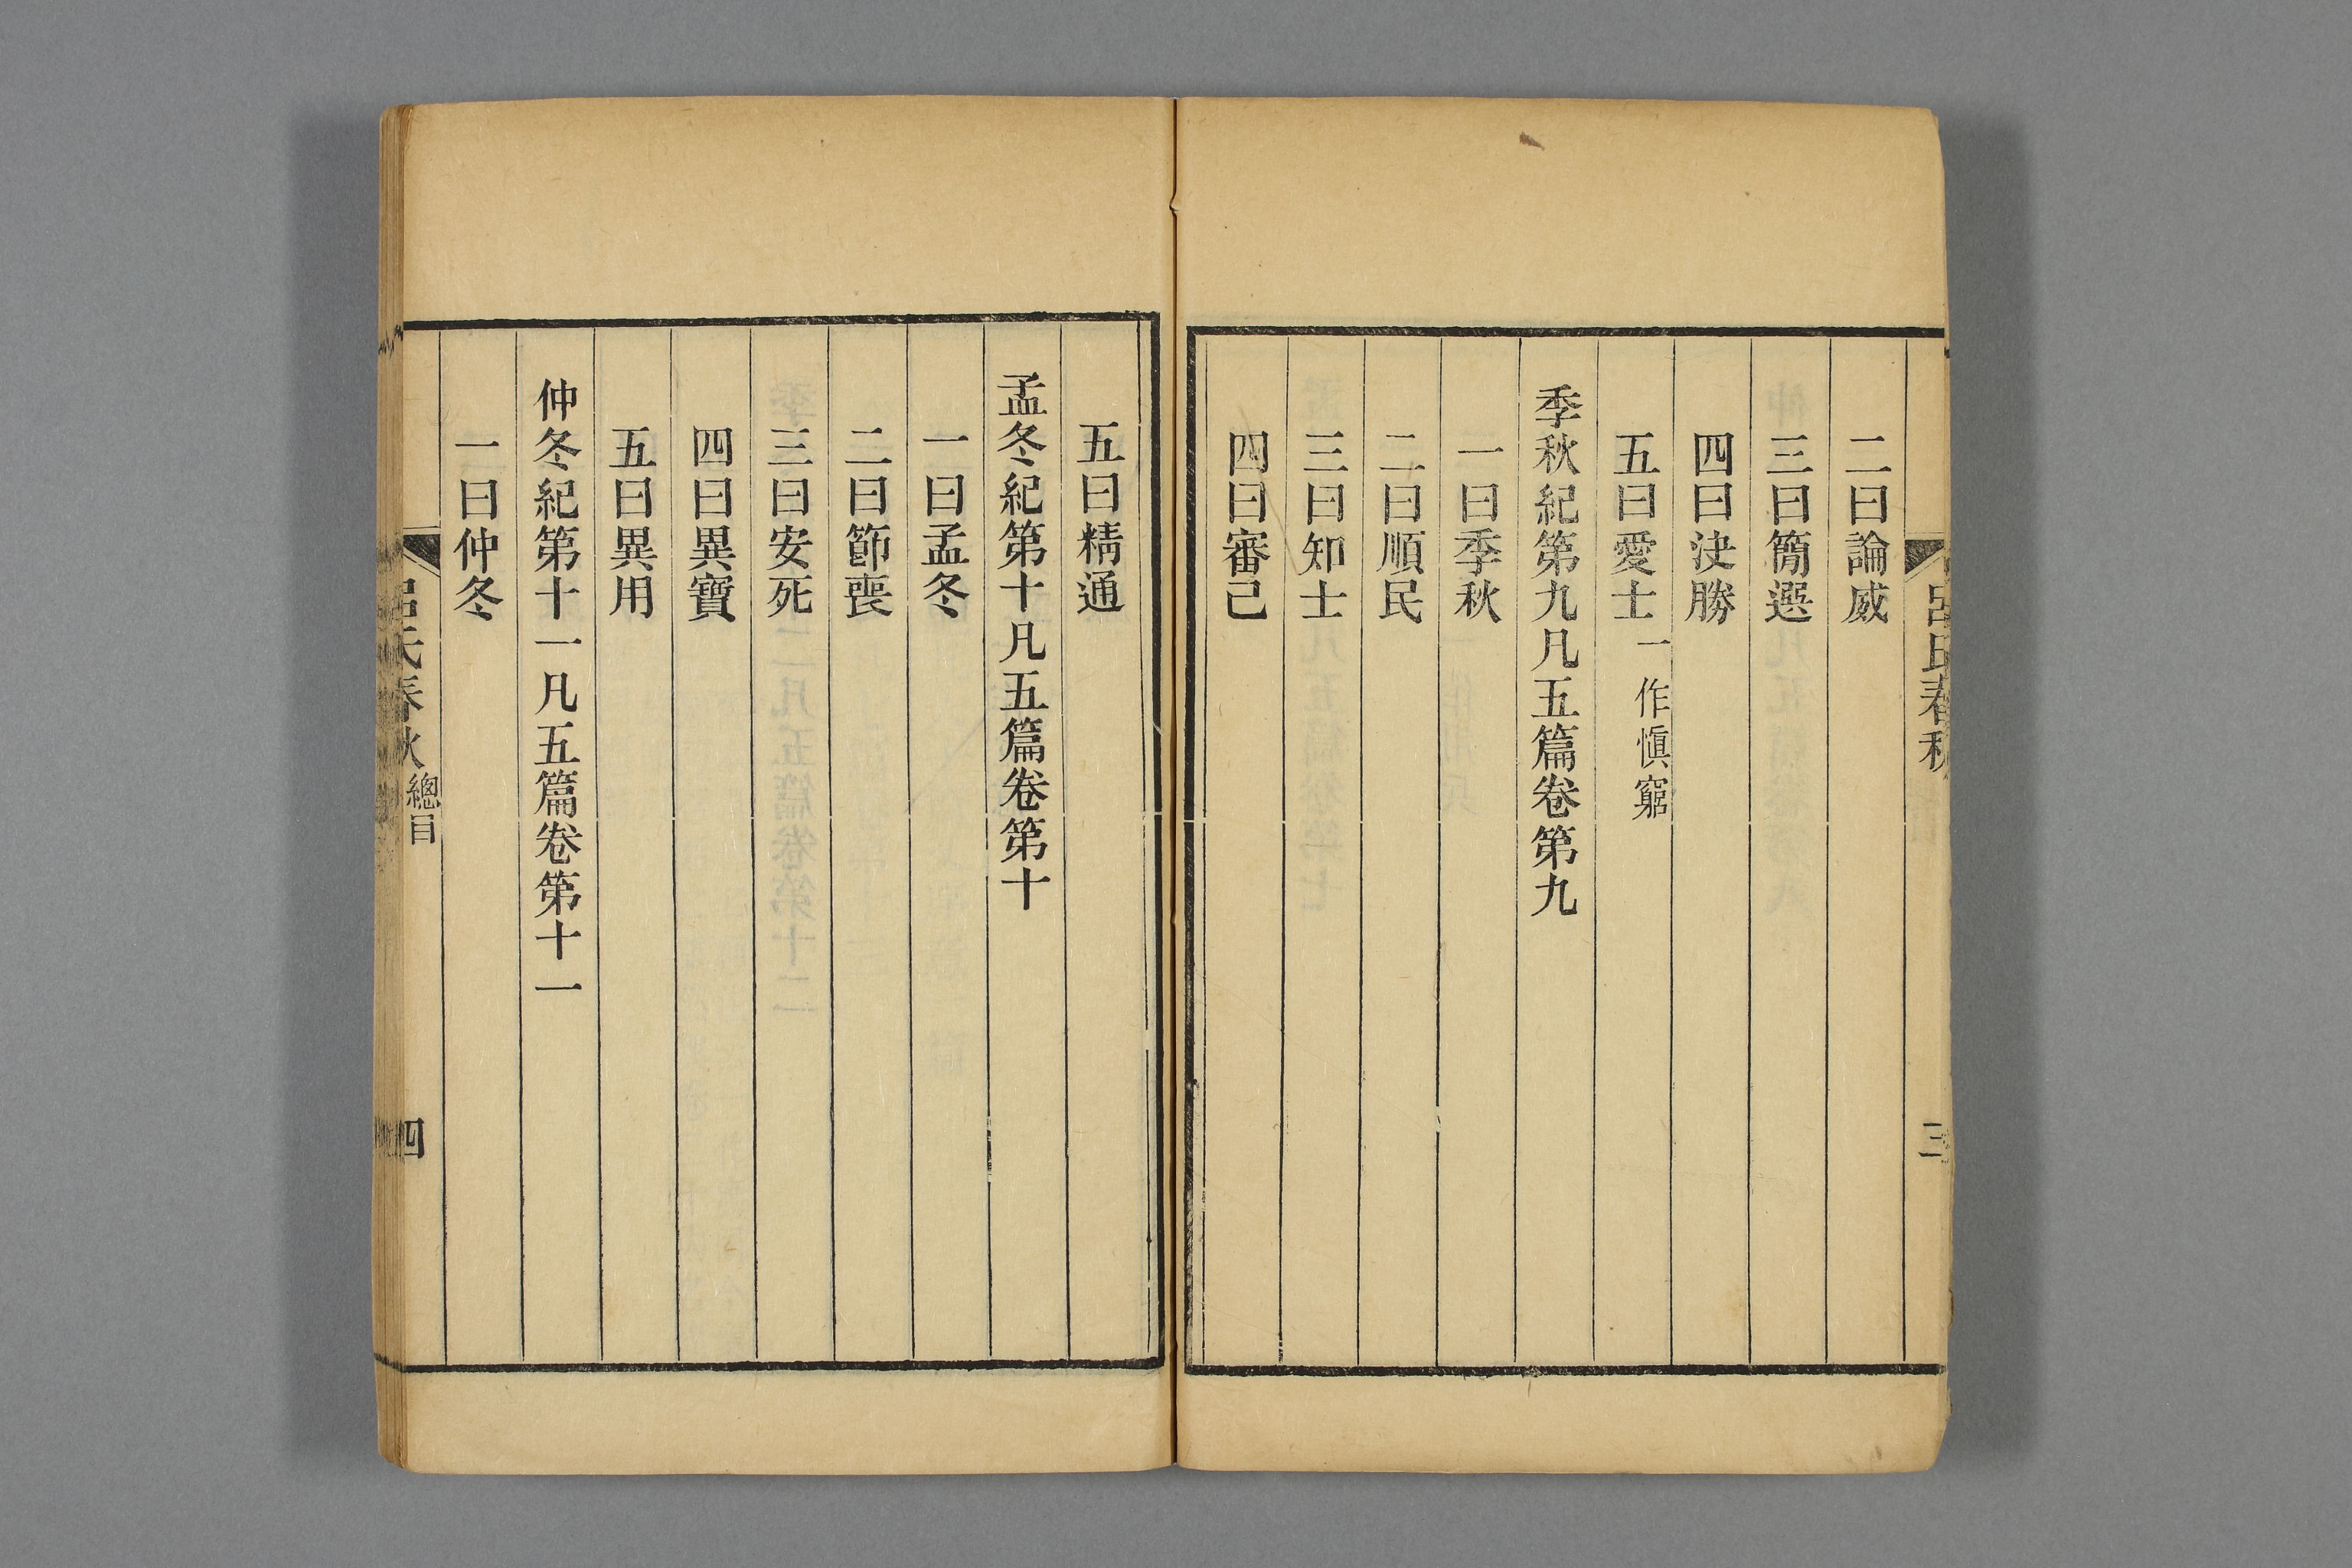 呂氏春秋
三
二曰論威
三曰簡選
四曰決勝
五曰愛士一作慎窮
季秋紀第九凡五篇卷第九
一曰季秋
二曰順民
三曰知士
四曰審己
五曰精通
孟冬紀第十凡五篇卷第十
一曰孟冬
二曰節喪
三曰安死
四曰異寶
五曰異用
仲冬紀第十一凡五篇卷第十一
一曰仲冬
呂氏春秋 總目
四